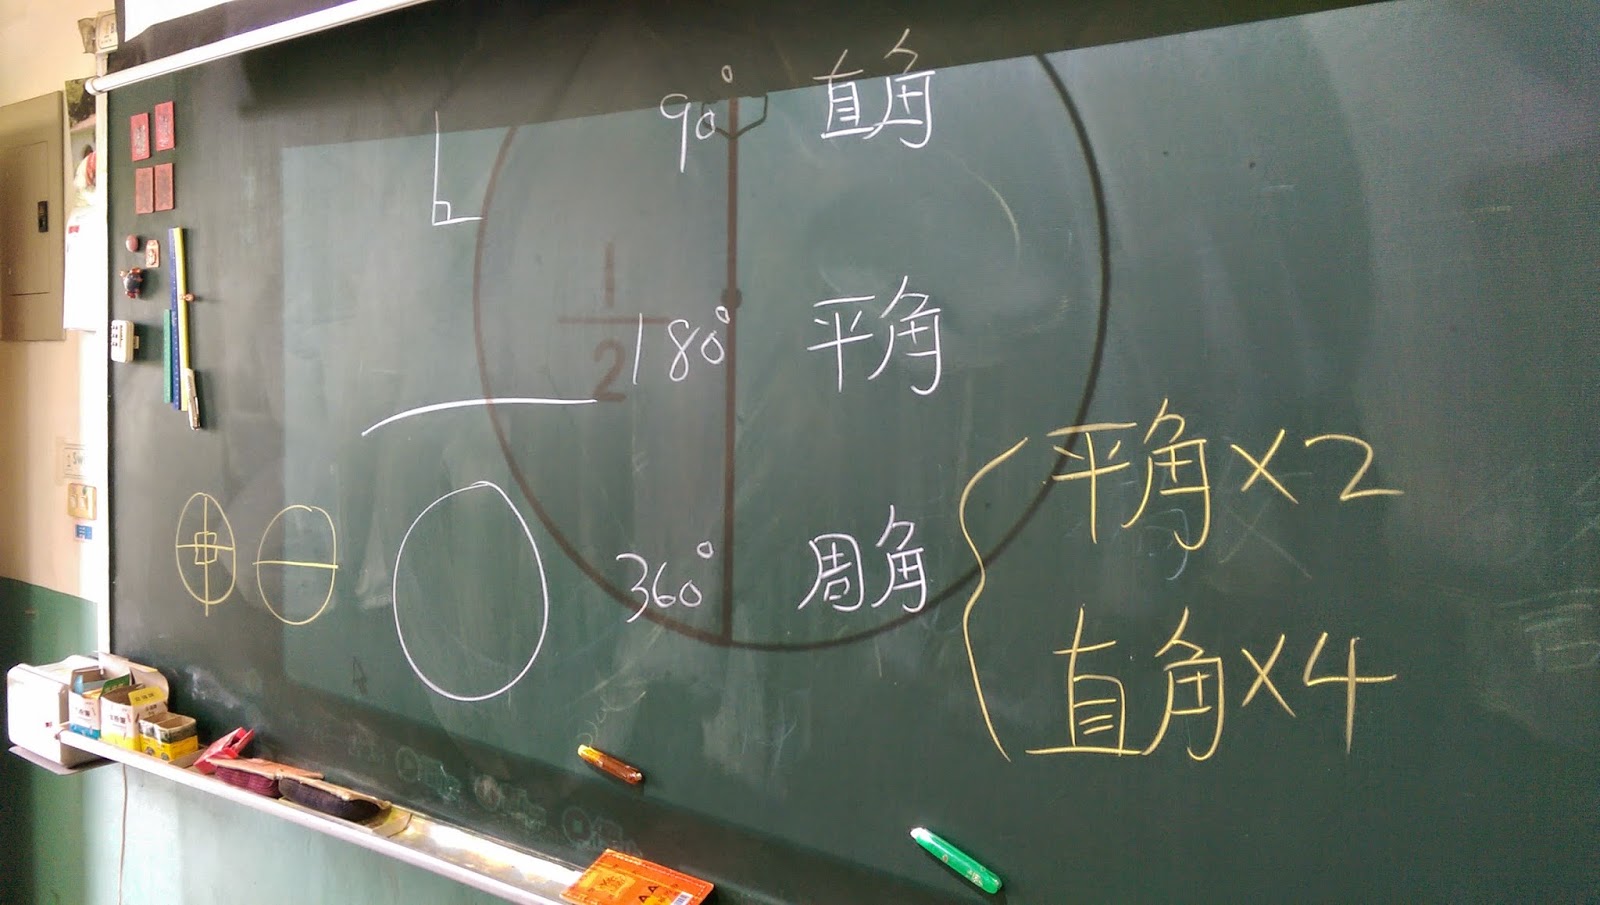 90° 直角
1
2
180° 平角
平角×2
360° 周角
直角×4